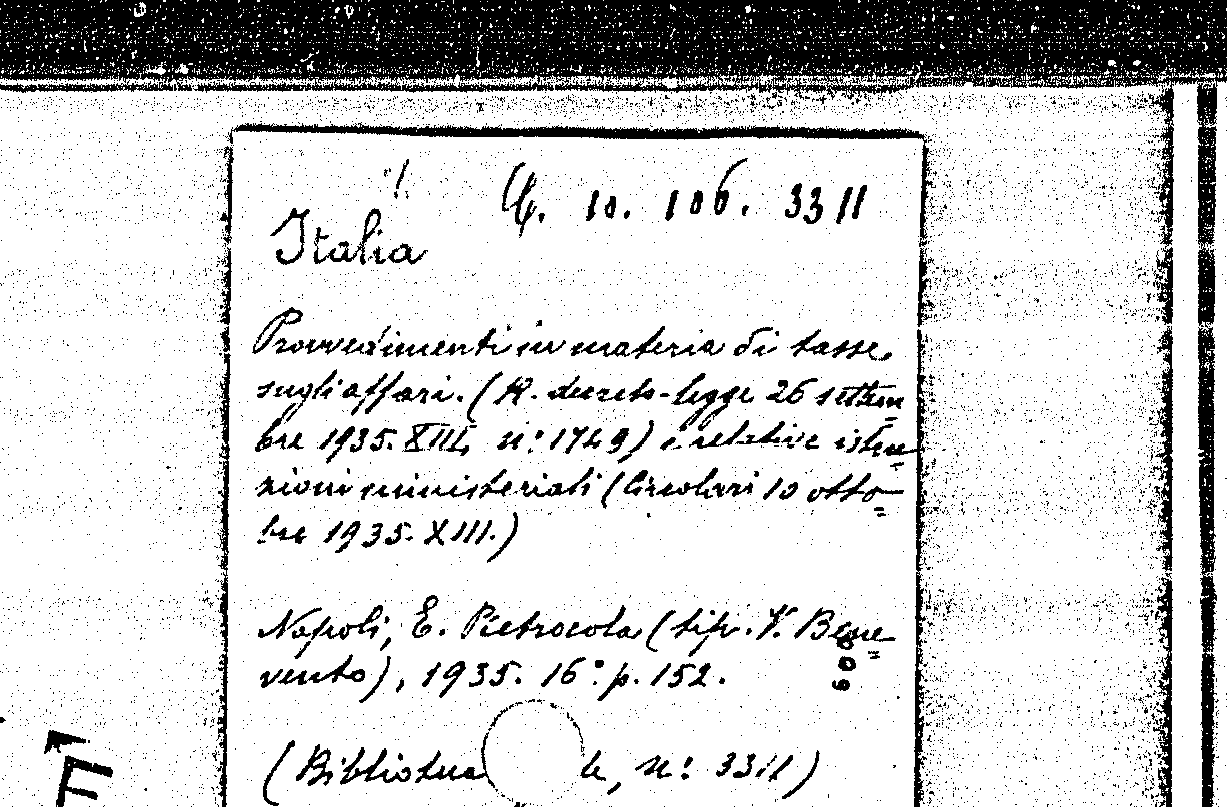 10. 106. 3311
Italia
Provvedimenti in materia di tasse
sugli affari. (R. decreto-legge 26 settem
bre 1935. XIII, n: 1749) e relative istru
zioni ministeriali (Circolari 10 otto
bre 1935. XIII.)
Napoli, E. Pietrocola (tip. V. Bene
vento), 1935. 16° p. 152.
009
(Biblioteca le, n: 3311)
F